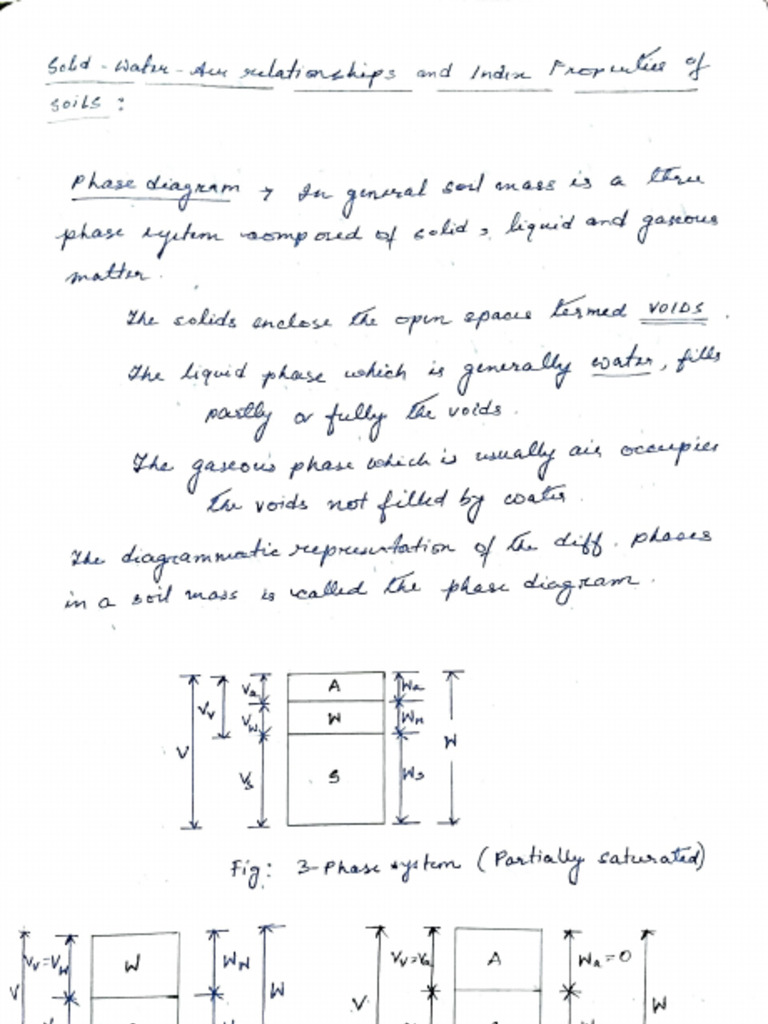 Solid - Water - Air relationships and Index Properties of
Soils :
Phase diagram → In general soil mass is a three
phase system composed of solid, liquid and gaseous
matter.
The solids enclose the open spaces termed VOIDS.
The liquid phase which is generally water, fills
partly or fully the voids.
The gaseous phase which is usually air occupies
the voids not filled by water.
The diagrammatic representation of the diff. phases
in a soil mass is called the phase diagram.
Va A Wa
Vv Vw W Ww
V Vs S Ws W
Fig: 3-Phase system (Partially saturated)
Vv=Vw W Ww Vv=Va A Wa=0
V W V W